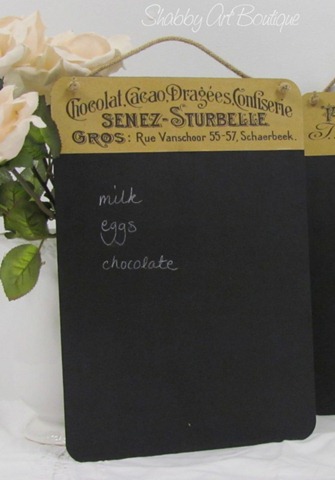 Shabby Art Boutique
Chocolat, Cacao, Dragées, Confiserie
SENEZ-STURBELLE
GROS: Rue Vanschoor 55-57, Schaerbeek.
milk
eggs
chocolate